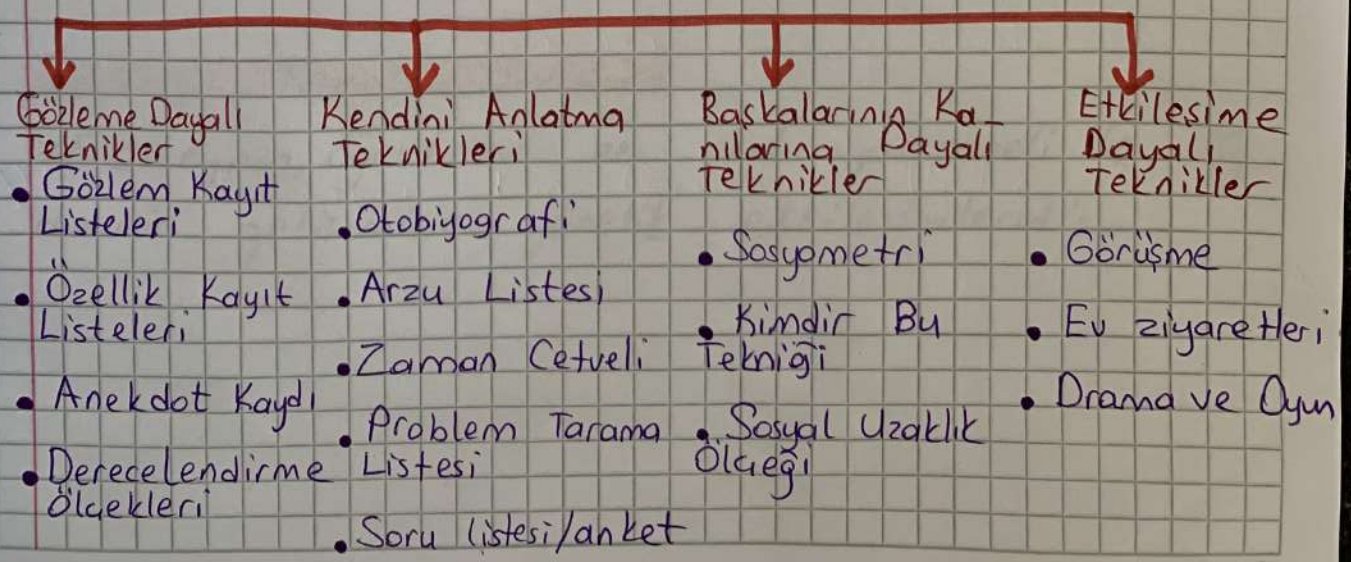 Gözleme Dayalı
Teknikler
• Gözlem Kayıt
Listeleri
• Özellik Kayıt
Listeleri
• Anekdot Kaydı
• Derecelendirme
Ölçekleri
Kendini Anlatma
Teknikleri
• Otobiyografi
• Arzu Listesi
• Zaman Cetveli
• Problem Tarama
Listesi
• Soru listesi/anket
Başkalarının Ka-
nılarına Dayalı
Teknikler
• Sosyometri
• Kimdir Bu
Tekniği
• Sosyal Uzaklık
Ölçeği
Etkileşime
Dayalı
Teknikler
• Görüşme
• Ev ziyaretleri
• Drama ve Oyun